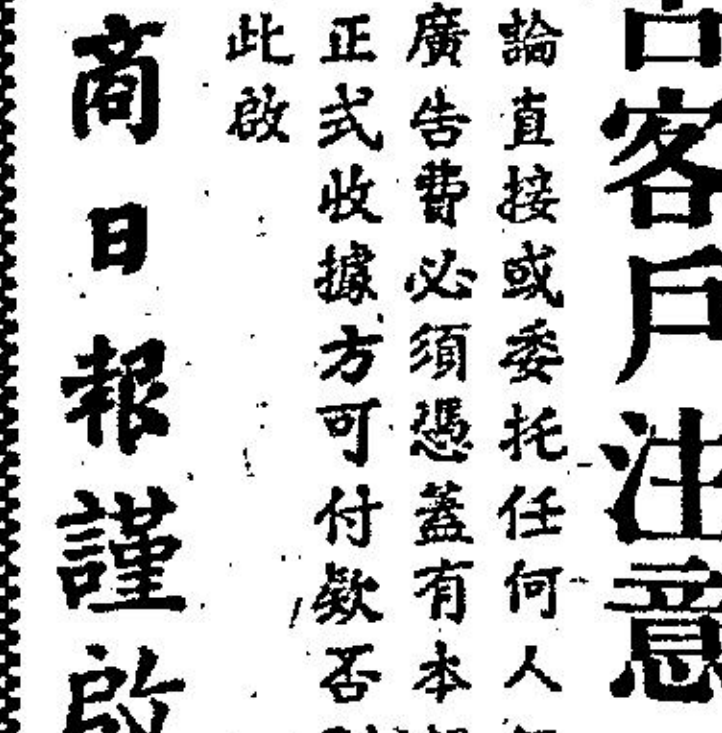 客戶注意
論直接或委托任何人
廣告費必須憑蓋有本
正式收據方可付欵否
此啟
商日報謹啟